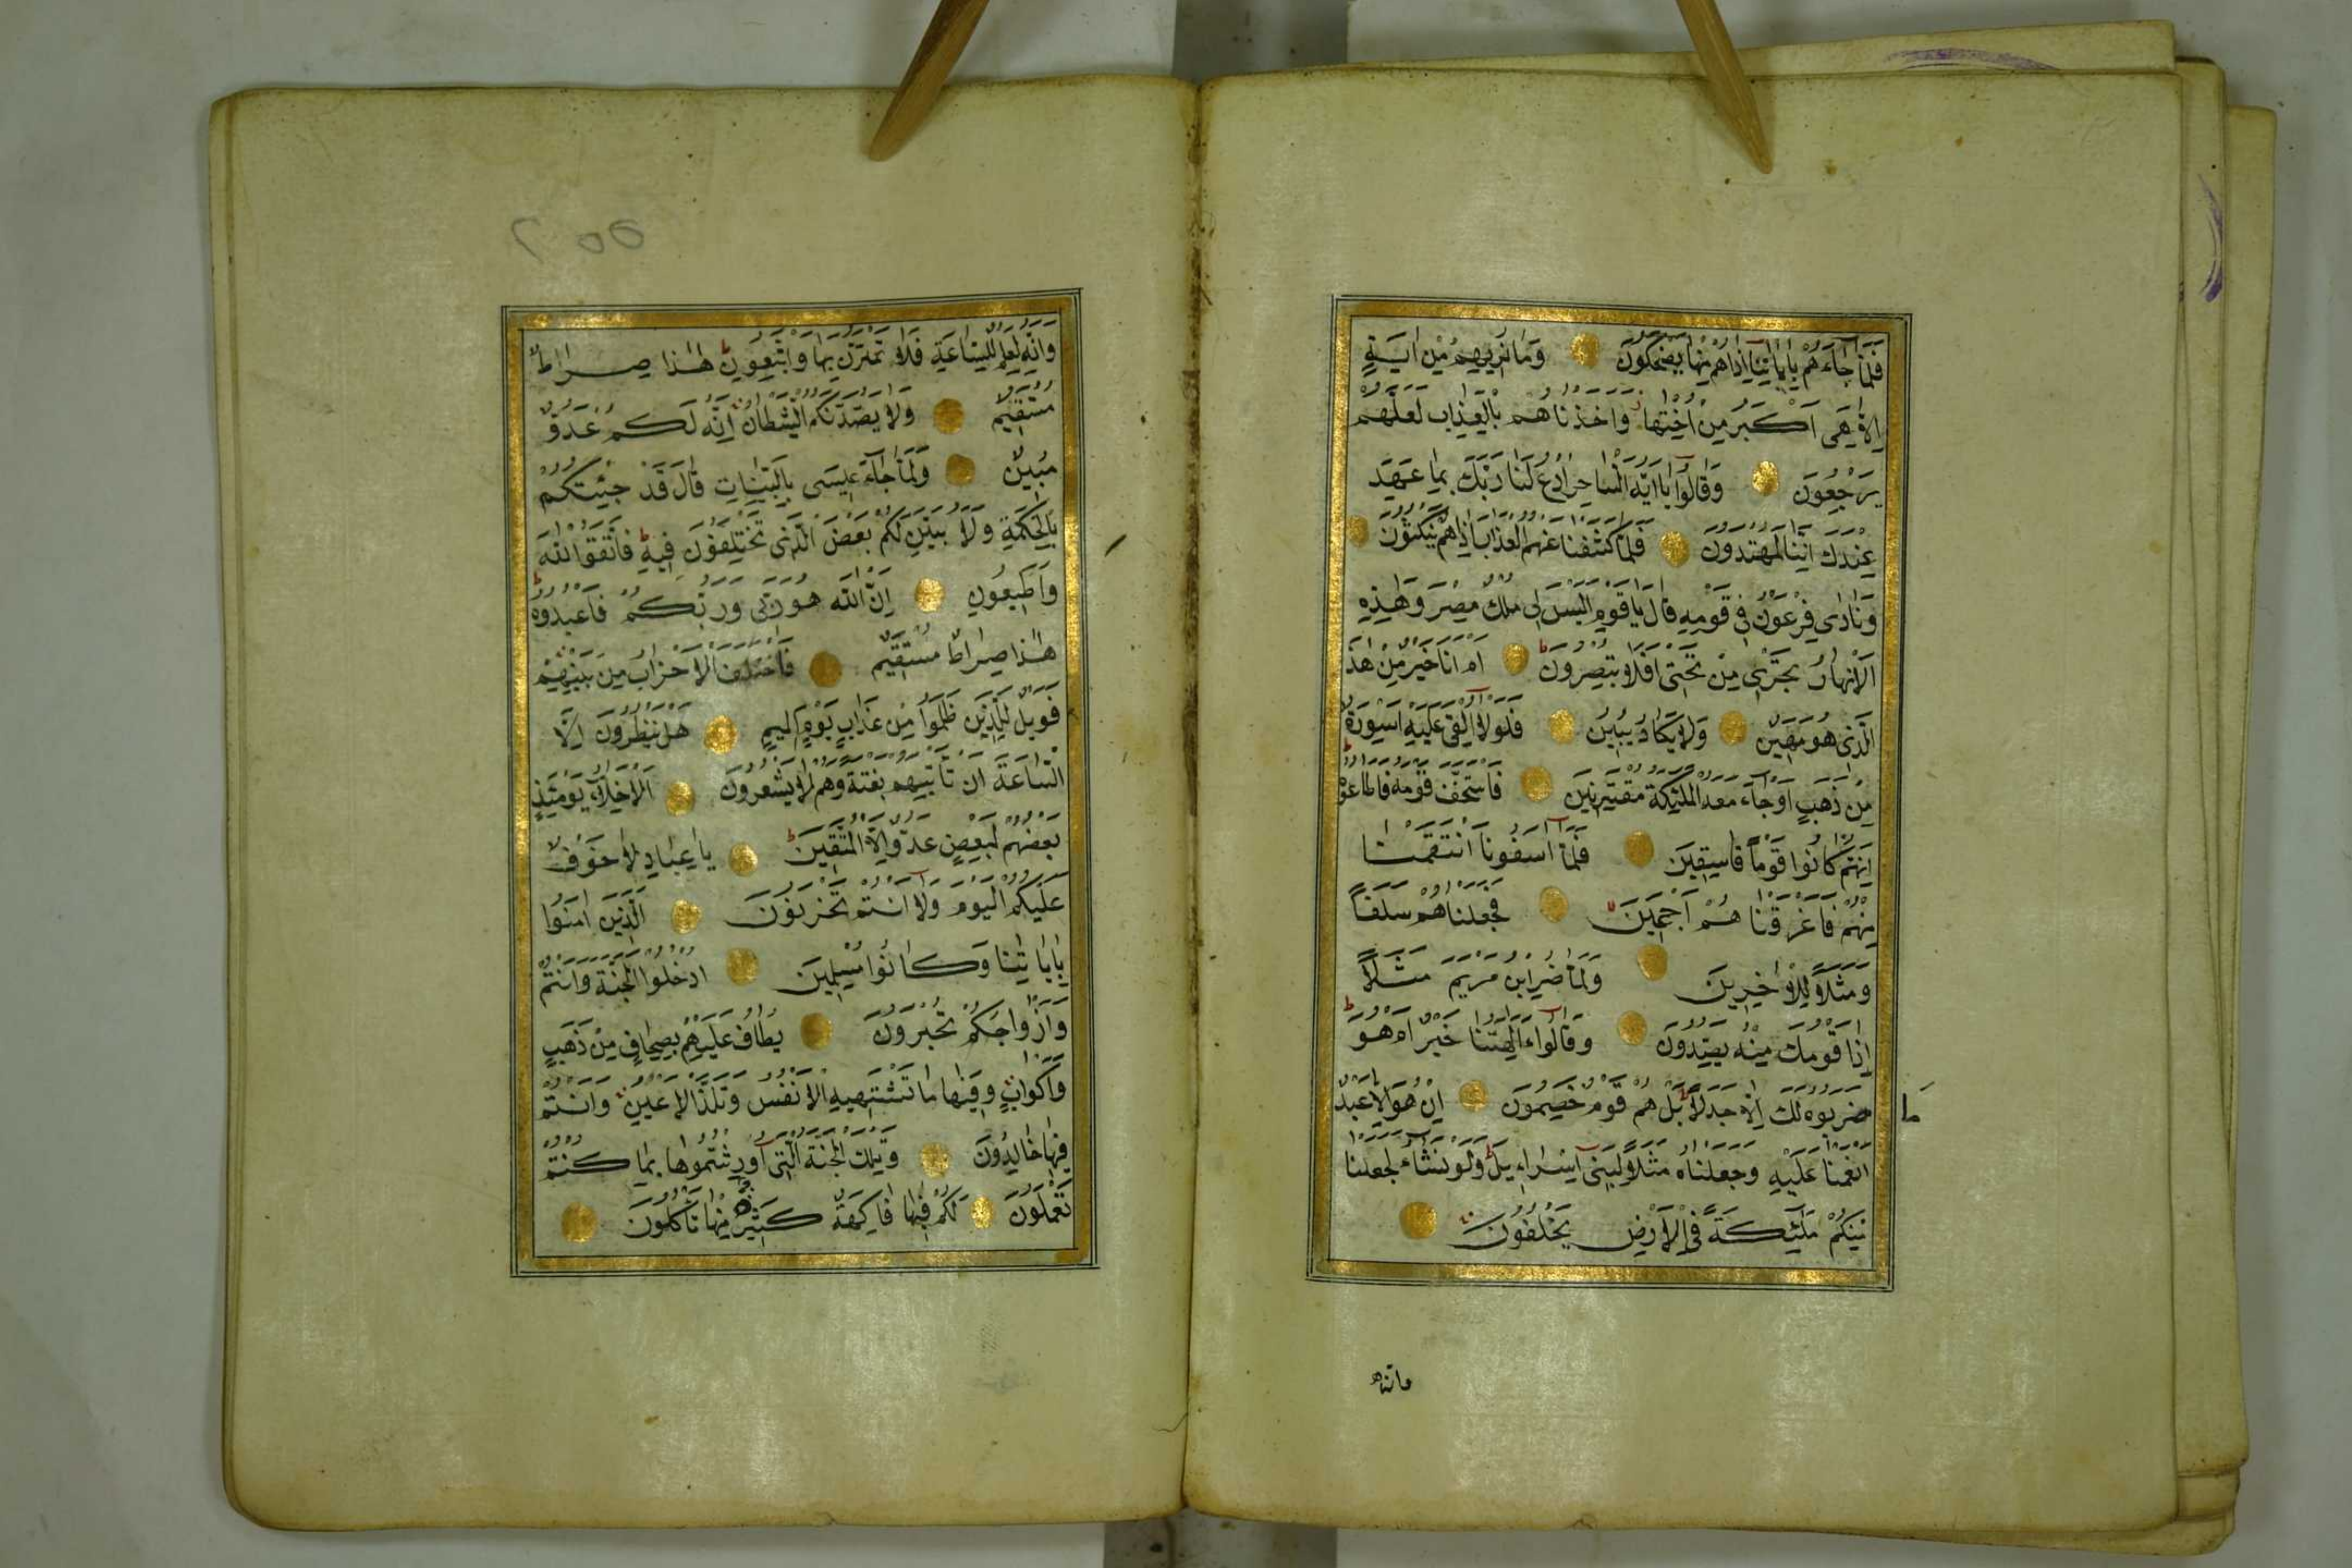 فَلَمَّا جَاءَهُمْ بِاٰيَاتِنَا اِذَاهُمْ مِنْهَا يَضْحَكُونَ وَمَا نُرِيهِمْ مِنْ اٰيَةٍ
اِلَّا هِيَ اَكْبَرُ مِنْ اُخْتِهَا وَاَخَذْنَاهُمْ بِالْعَذَابِ لَعَلَّهُمْ
يَرْجِعُونَ وَقَالُوا يَا اَيُّهَ السَّاحِرُ ادْعُ لَنَا رَبَّكَ بِمَا عَهِدَ
عِنْدَكَ اِنَّنَا لَمُهْتَدُونَ فَلَمَّا كَشَفْنَا عَنْهُمُ الْعَذَابَ اِذَاهُمْ يَنْكُثُونَ
وَنَادٰى فِرْعَوْنُ فِى قَوْمِهِ قَالَ يَا قَوْمِ اَلَيْسَ لِى مُلْكُ مِصْرَ وَهٰذِهِ
الْاَنْهَارُ تَجْرِى مِنْ تَحْتِى اَفَلَا تُبْصِرُونَ اَمْ اَنَا خَيْرٌ مِنْ هٰذَا
الَّذِى هُوَ مَهِينٌ وَلَا يَكَادُ يُبِينُ فَلَوْلَا اُلْقِىَ عَلَيْهِ اَسْوِرَةٌ
مِنْ ذَهَبٍ اَوْ جَاءَ مَعَهُ الْمَلٰئِكَةُ مُقْتَرِنِينَ فَاسْتَخَفَّ قَوْمَهُ فَاَطَاعُوهُ
اِنَّهُمْ كَانُوا قَوْمًا فَاسِقِينَ فَلَمَّا اٰسَفُونَا انْتَقَمْنَا
مِنْهُمْ فَاَغْرَقْنَا هُمْ اَجْمَعِينَ فَجَعَلْنَاهُمْ سَلَفًا
وَمَثَلًا لِلْاٰخِرِينَ وَلَمَّا ضُرِبَ ابْنُ مَرْيَمَ مَثَلًا
اِذَا قَوْمُكَ مِنْهُ يَصِدُّونَ وَقَالُوا ءَاٰلِهَتُنَا خَيْرٌ اَمْ هُوَ
مَا
ضَرَبُوهُ لَكَ اِلَّا جَدَلًا بَلْ هُمْ قَوْمٌ خَصِمُونَ اِنْ هُوَ اِلَّا عَبْدٌ
اَنْعَمْنَا عَلَيْهِ وَجَعَلْنَاهُ مَثَلًا لِبَنِى اِسْرَاءِيلَ وَلَوْ نَشَاءُ لَجَعَلْنَا
مِنْكُمْ مَلٰئِكَةً فِى الْاَرْضِ يَخْلُفُونَ
وانه
وَاِنَّهُ لَعِلْمٌ لِلسَّاعَةِ فَلَا تَمْتَرُنَّ بِهَا وَاتَّبِعُونِ هٰذَا صِرَاطٌ
مُسْتَقِيمٌ وَلَا يَصُدَّنَّكُمُ الشَّيْطَانُ اِنَّهُ لَكُمْ عَدُوٌّ
مُبِينٌ وَلَمَّا جَاءَ عِيسَى بِالْبَيِّنَاتِ قَالَ قَدْ جِئْتُكُمْ
بِالْحِكْمَةِ وَلِاُبَيِّنَ لَكُمْ بَعْضَ الَّذِى تَخْتَلِفُونَ فِيهِ فَاتَّقُوا اللّٰهَ
وَاَطِيعُونِ اِنَّ اللّٰهَ هُوَ رَبِّى وَرَبُّكُمْ فَاعْبُدُوهُ
هٰذَا صِرَاطٌ مُسْتَقِيمٌ فَاخْتَلَفَ الْاَحْزَابُ مِنْ بَيْنِهِمْ
فَوَيْلٌ لِلَّذِينَ ظَلَمُوا مِنْ عَذَابِ يَوْمٍ اَلِيمٍ هَلْ يَنْظُرُونَ اِلَّا
السَّاعَةَ اَنْ تَأْتِيَهُمْ بَغْتَةً وَهُمْ لَا يَشْعُرُونَ اَلْاَخِلَّاءُ يَوْمَئِذٍ
بَعْضُهُمْ لِبَعْضٍ عَدُوٌّ اِلَّا الْمُتَّقِينَ يَا عِبَادِ لَا خَوْفٌ
عَلَيْكُمُ الْيَوْمَ وَلَا اَنْتُمْ تَحْزَنُونَ اَلَّذِينَ اٰمَنُوا
بِاٰيَاتِنَا وَكَانُوا مُسْلِمِينَ اُدْخُلُوا الْجَنَّةَ وَاَنْتُمْ
وَاَزْوَاجُكُمْ تُحْبَرُونَ يُطَافُ عَلَيْهِمْ بِصِحَافٍ مِنْ ذَهَبٍ
وَاَكْوَابٍ وَفِيهَا مَا تَشْتَهِيهِ الْاَنْفُسُ وَتَلَذُّ الْاَعْيُنُ وَاَنْتُمْ
فِيهَا خَالِدُونَ وَتِلْكَ الْجَنَّةُ الَّتِى اُورِثْتُمُوهَا بِمَا كُنْتُمْ
تَعْمَلُونَ لَكُمْ فِيهَا فَاكِهَةٌ كَثِيرَةٌ مِنْهَا تَأْكُلُونَ